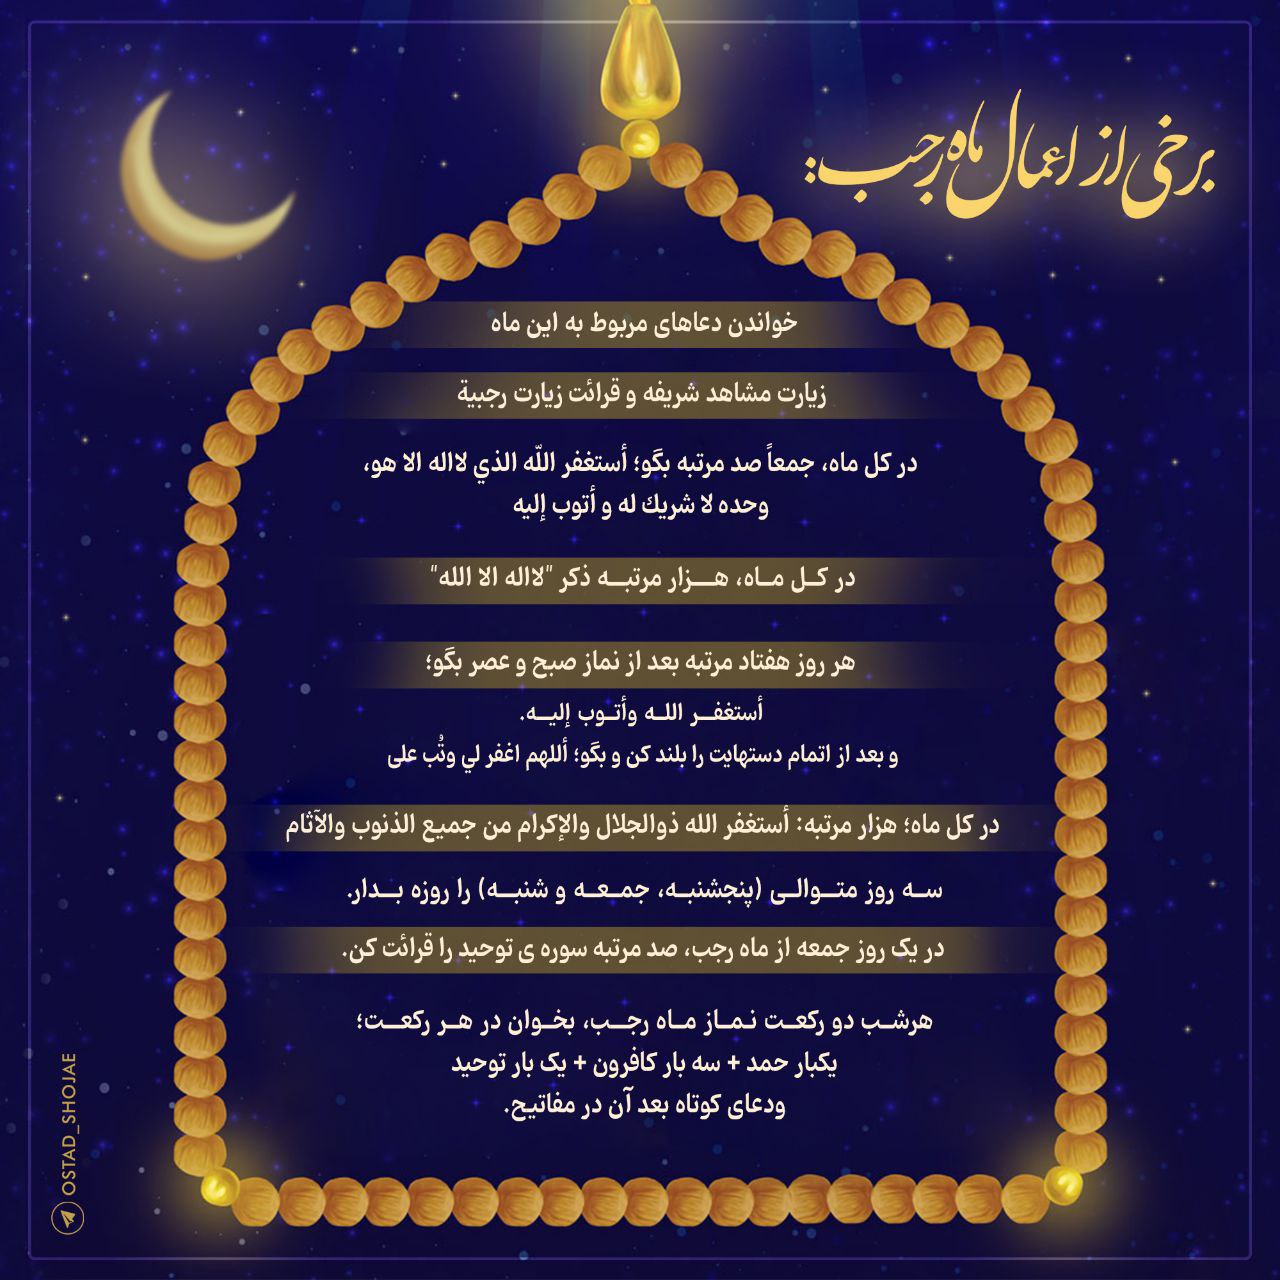 برخی از اعمال ماه رجب:
خواندن دعاهای مربوط به این ماه
زیارت مشاهد شریفه و قرائت زیارت رجبیة
در کل ماه، جمعاً صد مرتبه بگو؛ أستغفر اللّه الذي لااله الا هو،
وحده لا شريك له و أتوب إليه
در کــل مــاه، هــــزار مرتبـــه ذکر "لااله الا الله"
هر روز هفتاد مرتبه بعد از نماز صبح و عصر بگو؛
أستغفـــر اللــه وأتــوب إليــه.
و بعد از اتمام دستهایت را بلند کن و بگو؛ أللهم اغفر لي وتُب علی
در کل ماه؛ هزار مرتبه: أستغفر الله ذوالجلال والإکرام من جمیع الذنوب والآثام
ســه روز متــوالــی (پنجشنبــه، جمــعــه و شنبــه) را روزه بــدار.
در یک روز جمعه از ماه رجب، صد مرتبه سوره ی توحید را قرائت کن.
هرشـب دو رکعـت نـمـاز مـاه رجــب، بخـوان در هـر رکعــت؛
یکبار حمد + سه بار کافرون + یک بار توحید
ودعای کوتاه بعد آن در مفاتیح.
OSTAD_SHOJAE